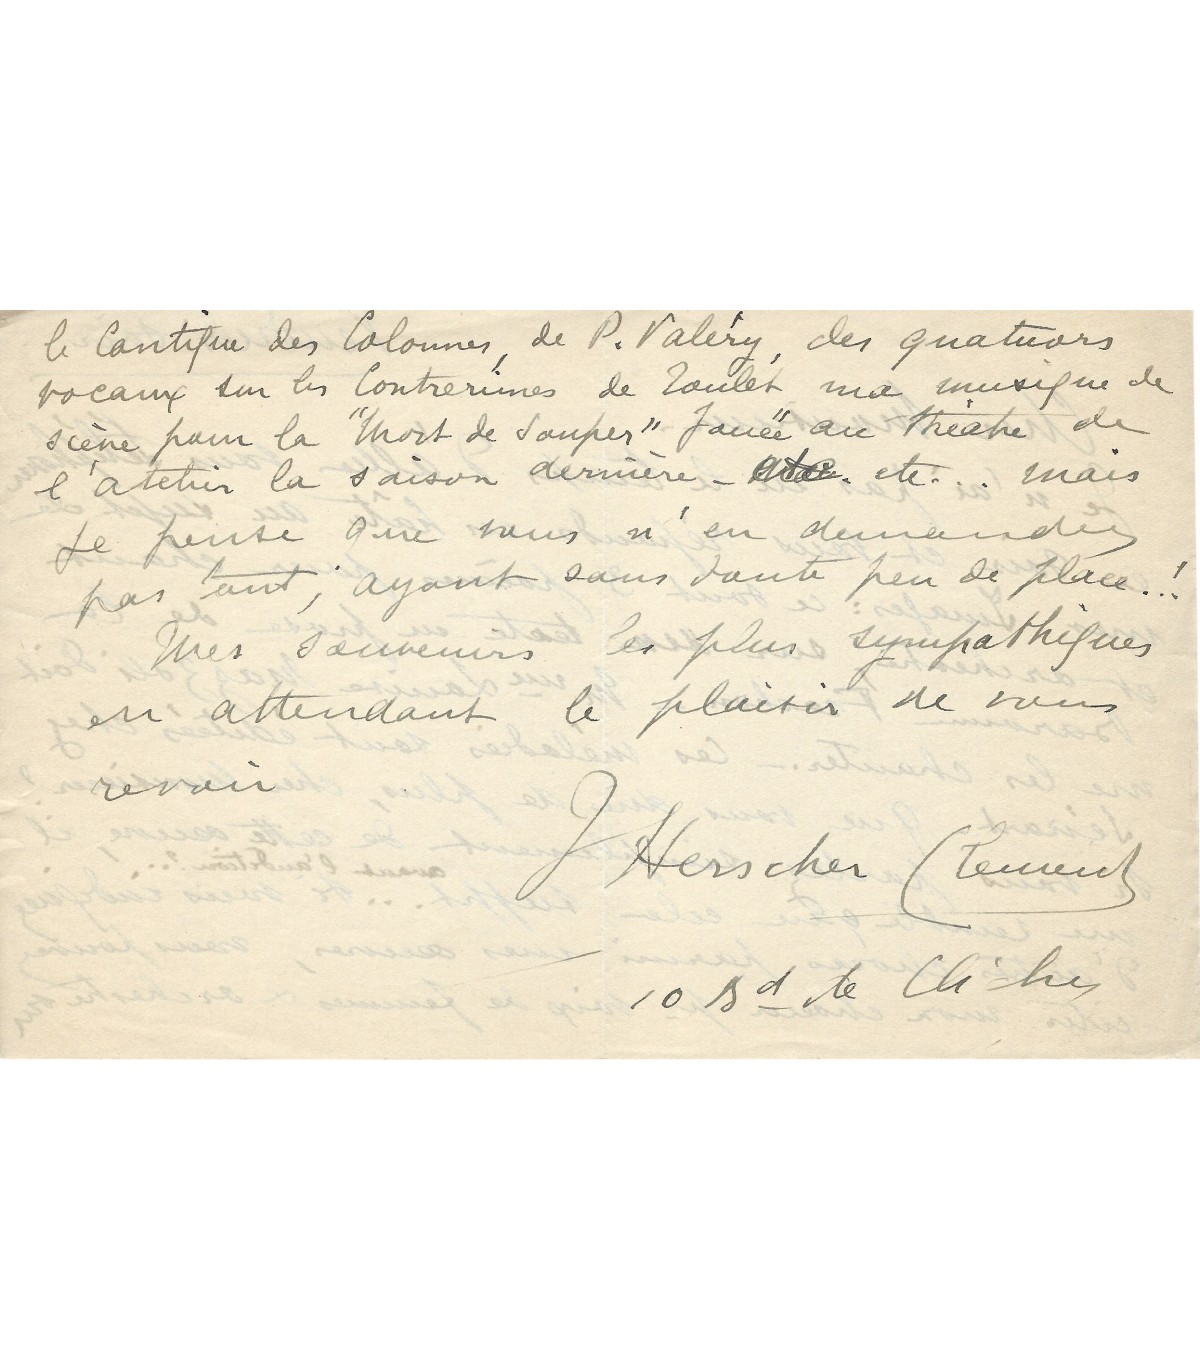 le Cantique des Colonnes, de P. Valéry, des quatuors
vocaux sur les Contrerimes de Toulet ma musique de
scène pour la "Mort de Souper" Jouée au théâtre de
l'atelier la saison dernière - etc... mais
je pense que vous n'en demandez
pas tant, ayant sans doute peu de place..!
Mes souvenirs les plus sympathiques
en attendant le plaisir de vous
revoir
J Herscher Clement
10 Bd de Clichy